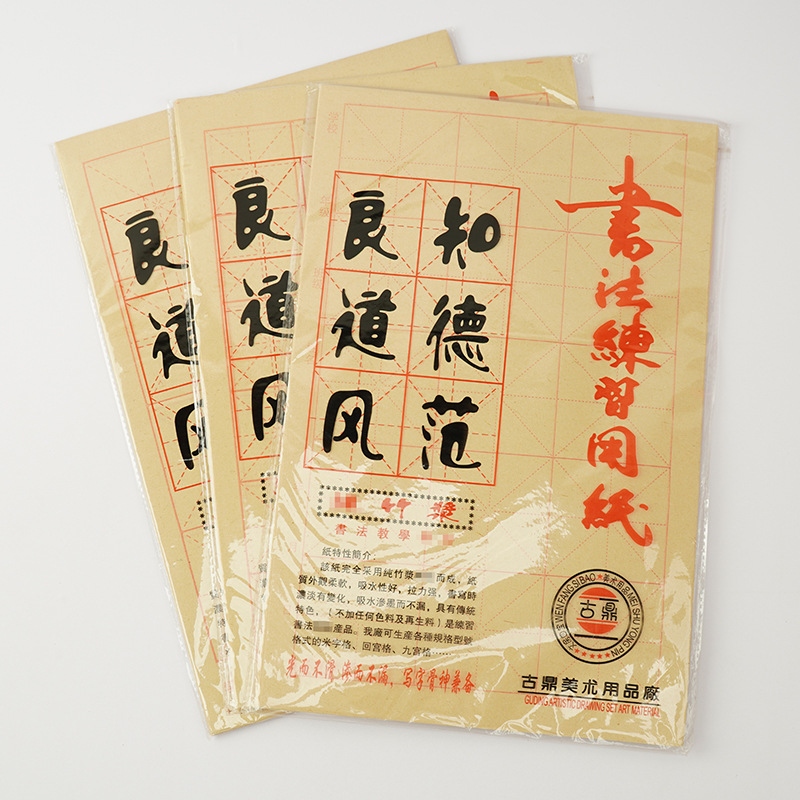 書法練習用紙
良知
道德
风范
竹漿
書法教學
紙特性簡介:
該紙完全采用純竹漿而成,紙
質外觀柔軟,吸水性好,拉力强,書寫時
濃淡有變化,吸水滲墨而不漏,具有傳統
特色,(不加任何色料及再生料)是練習
書法産品。我廠可生産各種規格型號
格式的米字格、回宫格、九宫格……
光而不滑 渗而不漏,写字骨神兼备
WEN FANG SI BAO ★ 美术用品 MEI SHU YONG PIN
古鼎
古鼎美术用品廠
GUDING ARTISTIC DRAWING SET ART MATERIAL
良
道
风
良
道
风